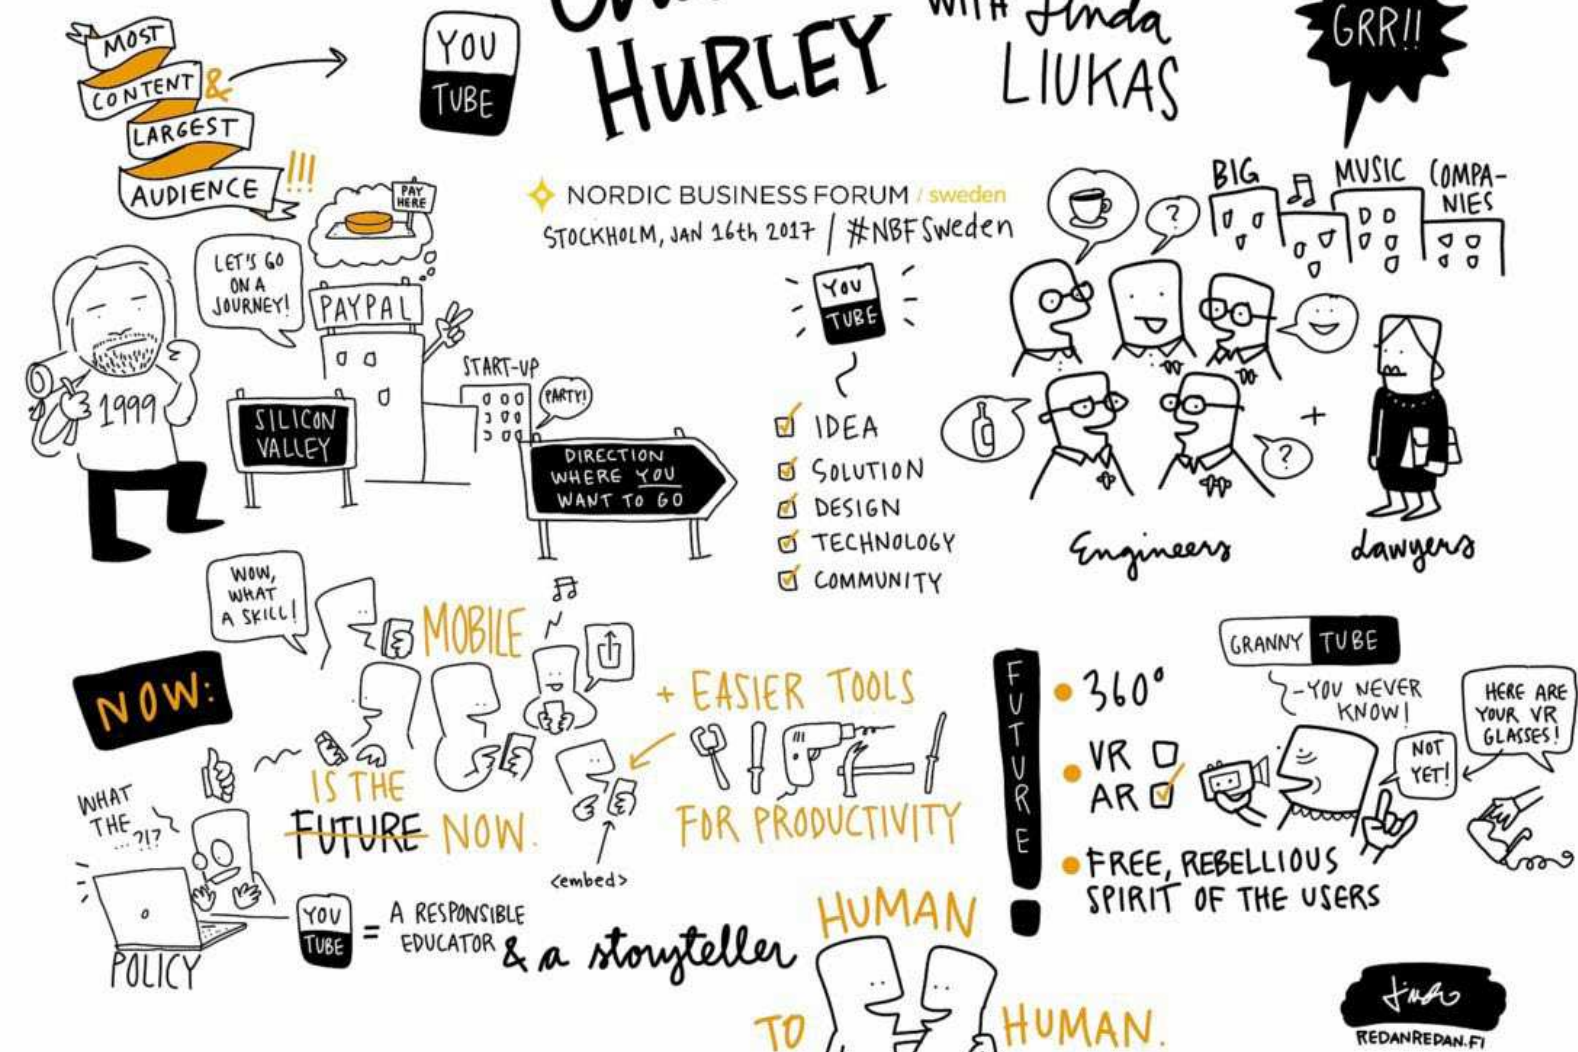 HURLEY
WITH Linda
LIUKAS
MOST
CONTENT &
LARGEST
AUDIENCE !!!
YOU
TUBE
GRR!!
NORDIC BUSINESS FORUM / sweden
STOCKHOLM, JAN 16th 2017 / #NBFSweden
BIG MUSIC COMPA-
NIES
PAY
HERE
LET'S GO
ON A
JOURNEY!
PAYPAL
1999
SILICON
VALLEY
START-UP
PARTY!
DIRECTION
WHERE YOU
WANT TO GO
YOU
TUBE
IDEA
SOLUTION
DESIGN
TECHNOLOGY
COMMUNITY
?
?
+
Engineers
Lawyers
NOW:
WOW,
WHAT
A SKILL!
MOBILE
IS THE
FUTURE NOW.
+ EASIER TOOLS
FOR PRODUCTIVITY
<embed>
WHAT
THE
...?!?
POLICY
YOU
TUBE
=
A RESPONSIBLE
EDUCATOR
& a storyteller
HUMAN
TO
HUMAN.
FUTURE!
360°
VR
AR
FREE, REBELLIOUS
SPIRIT OF THE USERS
GRANNY TUBE
-YOU NEVER
KNOW!
NOT
YET!
HERE ARE
YOUR VR
GLASSES!
REDANREDAN.FI